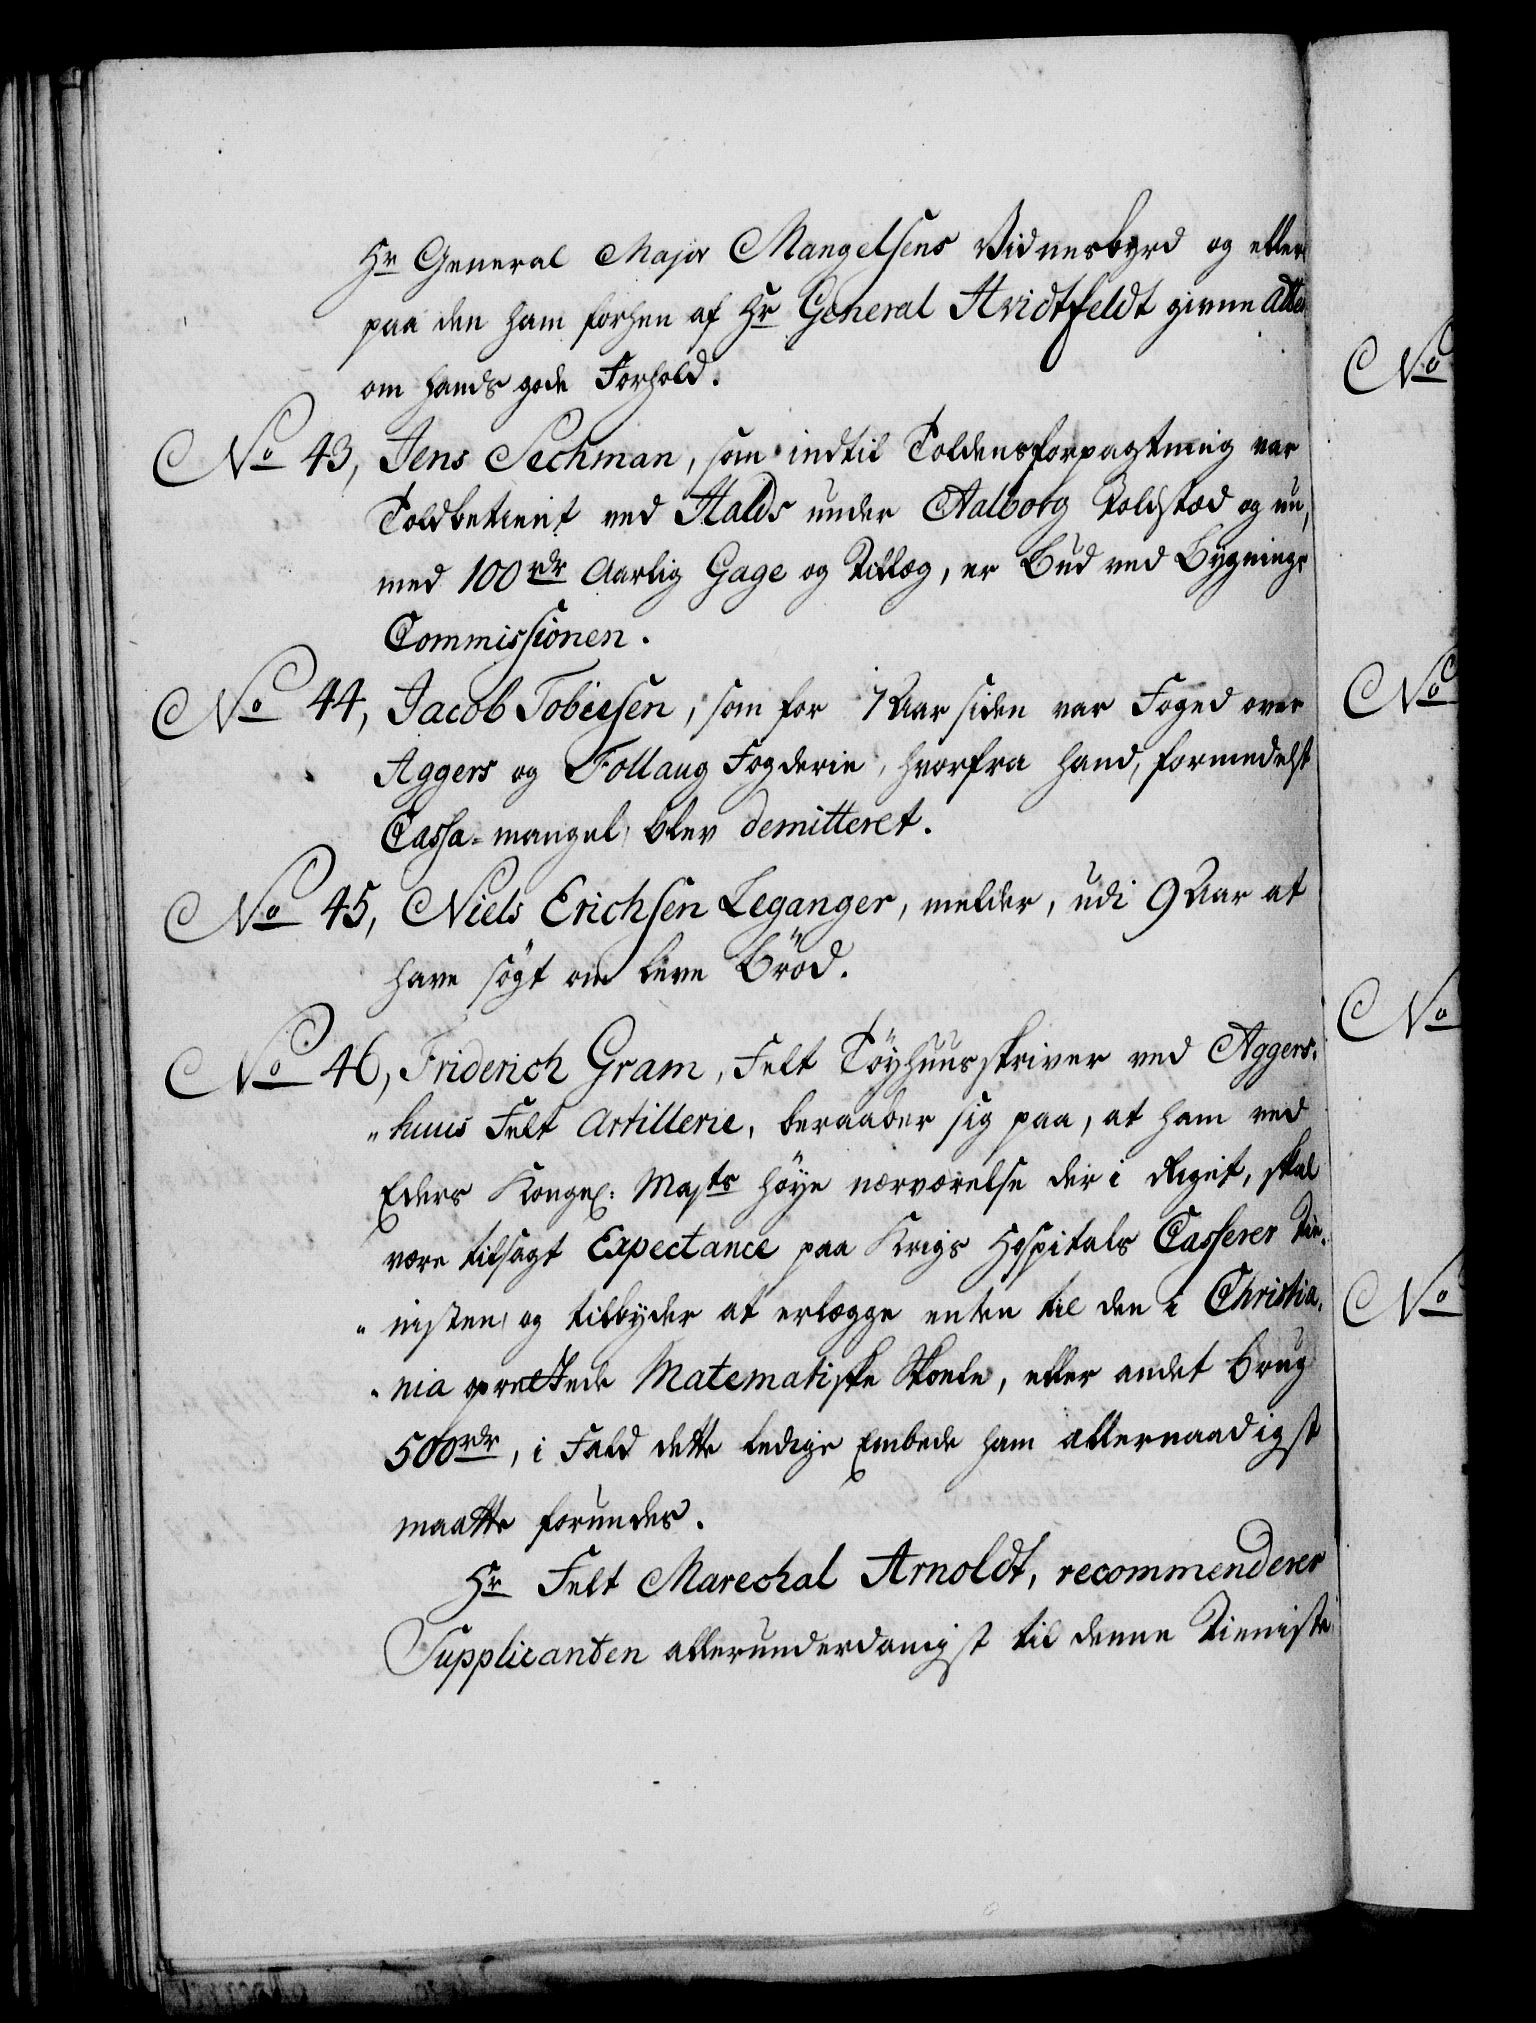 Hr General Major Mangelsens Vidnesbyrd og eller
paa den ham forhen af Hr General Hvidtfeldt givne Atte
om hands gode Forhold.
No 43, Jens Sechman, som indtil Toldensforpagtning var
Toldbetient ved Halds under Aalborg Toldsted og nu,
med 100 rdr Aarlig Gage og Tillæg, er Bud ved Bygnings
Commissionen.
No 44, Jacob Tobiesen, som for 7 Aar siden var Foged over
Aggers og Follaug Fogderie, hvorfra hand, formedelst
Cassa-mangel, blev demitteret.
No 45, Niels Erichsen Leganger, melder, udi 9 Aar at
have søgt om leve Brød.
No 46, Friderich Gram, Felt Tøyhuusskriver ved Aggers,
"huus Felt Artillerie, beraaber sig paa, at ham ved
Eders Kongel: Majts høye nærværelse der i Riget, skal
være tilsagt Expectance paa Krigs Hospitals Casserer Tie,
"nisten, og tilbyder at erlægge enten til den i Christia,
"nia oprettede Matematiske Skoele, eller andet brug
500 rdr, i Fald dette ledige Embede ham allernaadigst
maatte forundes.
Hr Felt Marechal Arnoldt, recommenderer
Supplicanten allerunderdanigst til denne Tieniste
No
No
No
No